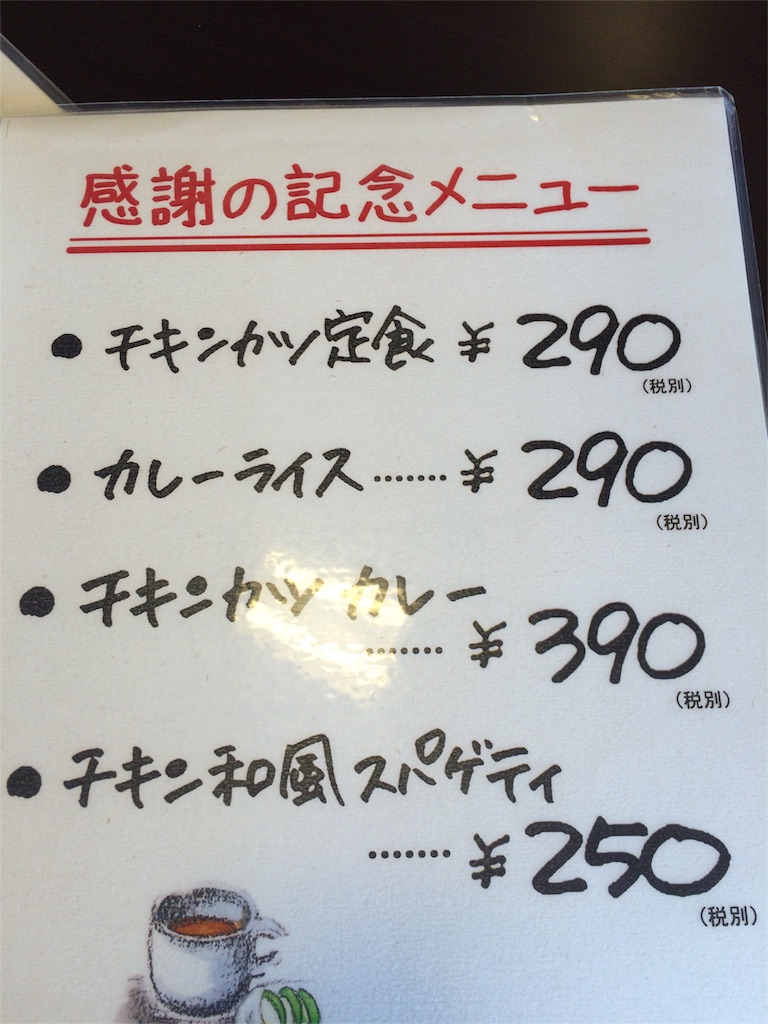 感謝の記念メニュー
● チキンカツ定食 ¥290
(税別)
● カレーライス……. ¥290
(税別)
● チキンカツカレー
……. ¥390
(税別)
● チキン和風スパゲティ
…….. ¥250
(税別)